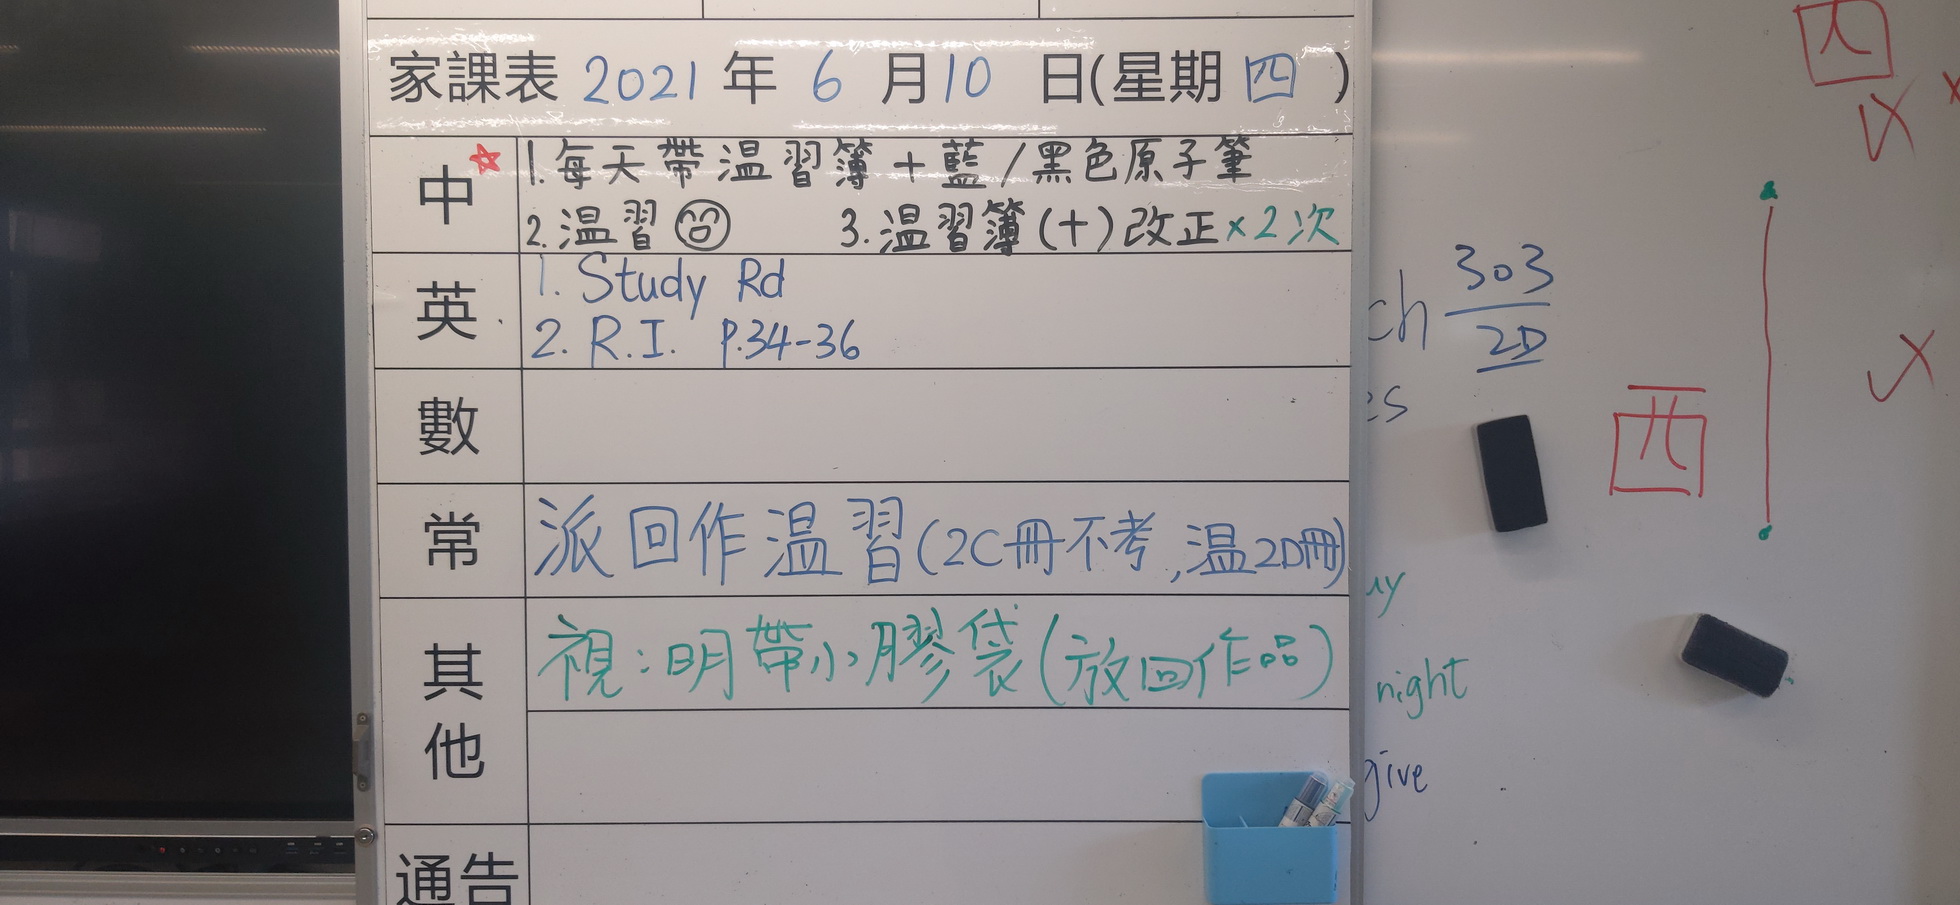 家課表 2021 年 6 月 10 日(星期 四 )
中 ☆
1. 每天帶温習簿+藍/黑色原子筆
2. 温習 3. 温習簿(十)改正×2次
英
1. Study Rd
2. R.I. P.34-36
數
常
派回作温習(2C冊不考,温2D冊)
其他
視:明帶小膠袋(放回作品)
通告
四
ch 303
2D
es
西
uy
night
give